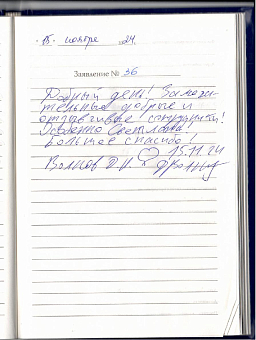 15. ноября 24
Заявление № 36
Добрый день! Замеча-
тельные добрые и
отзывчивые сотрудники!
Особенно Светлана
Большое спасибо!
Волков Д.Н. 15.11.24